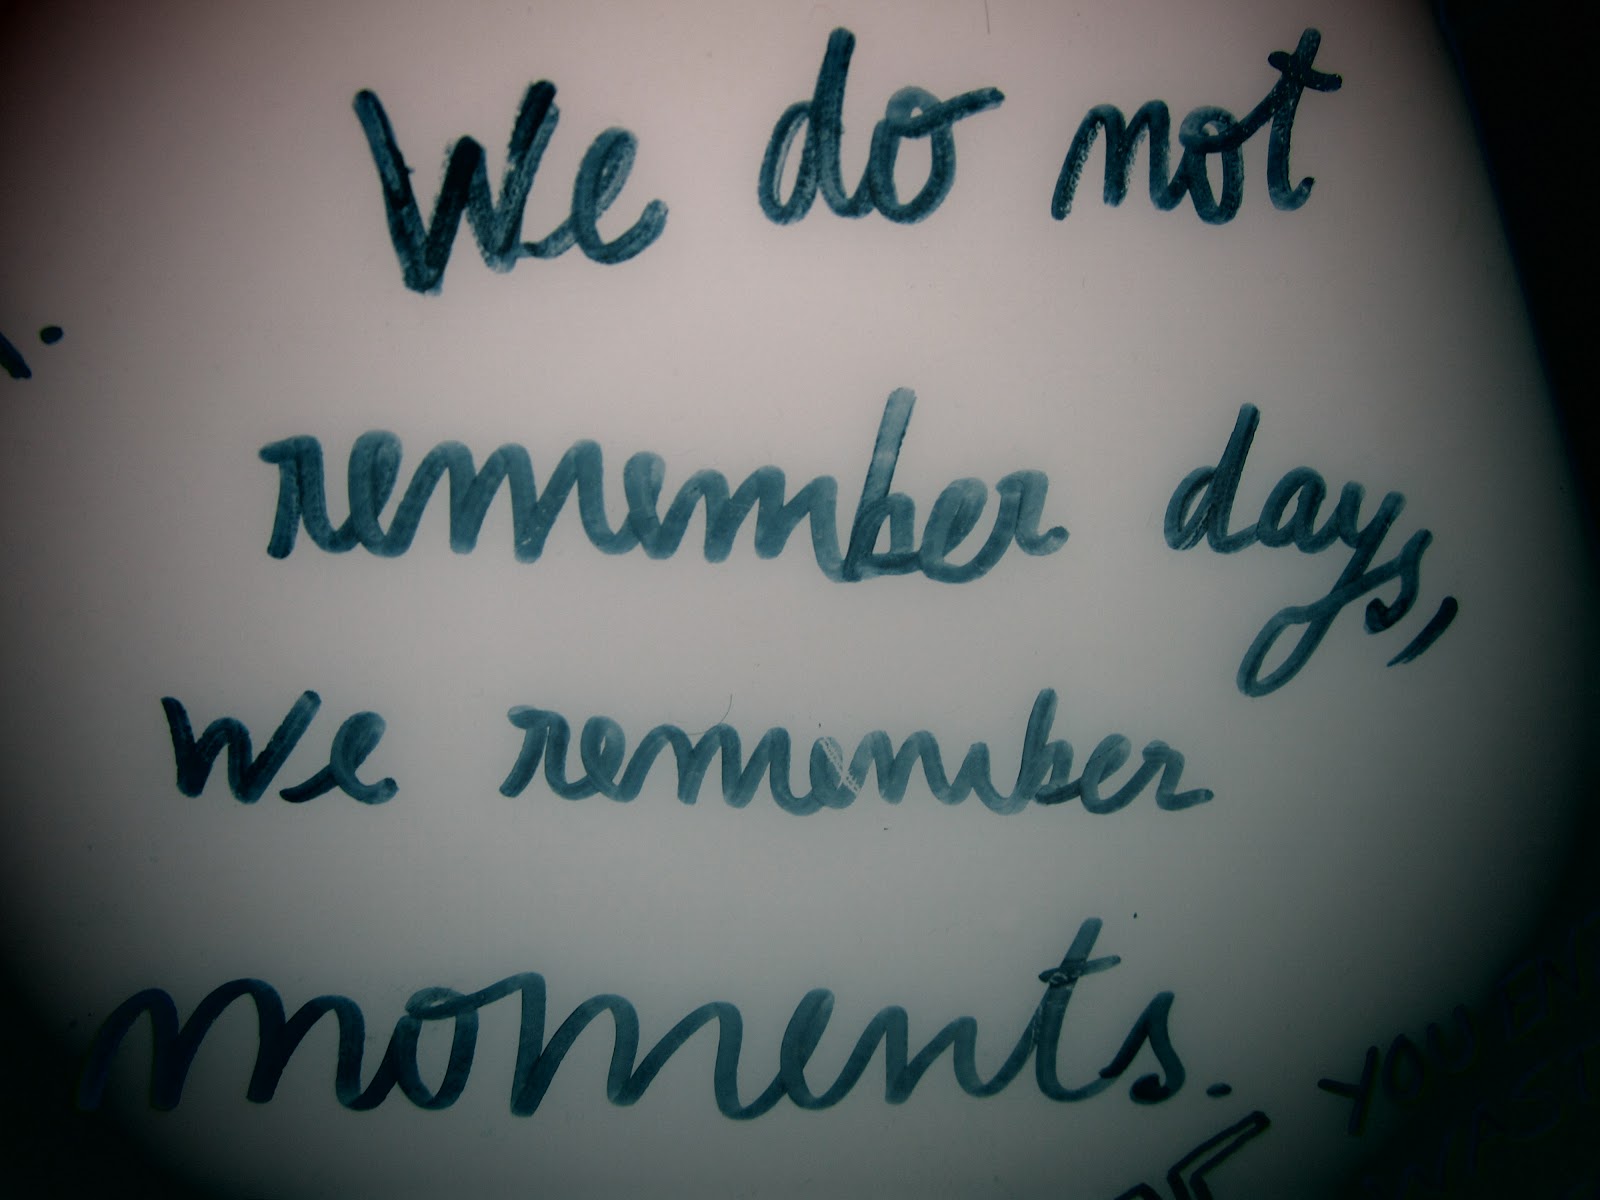 We do not
remember days,
we remember
moments.
YOU